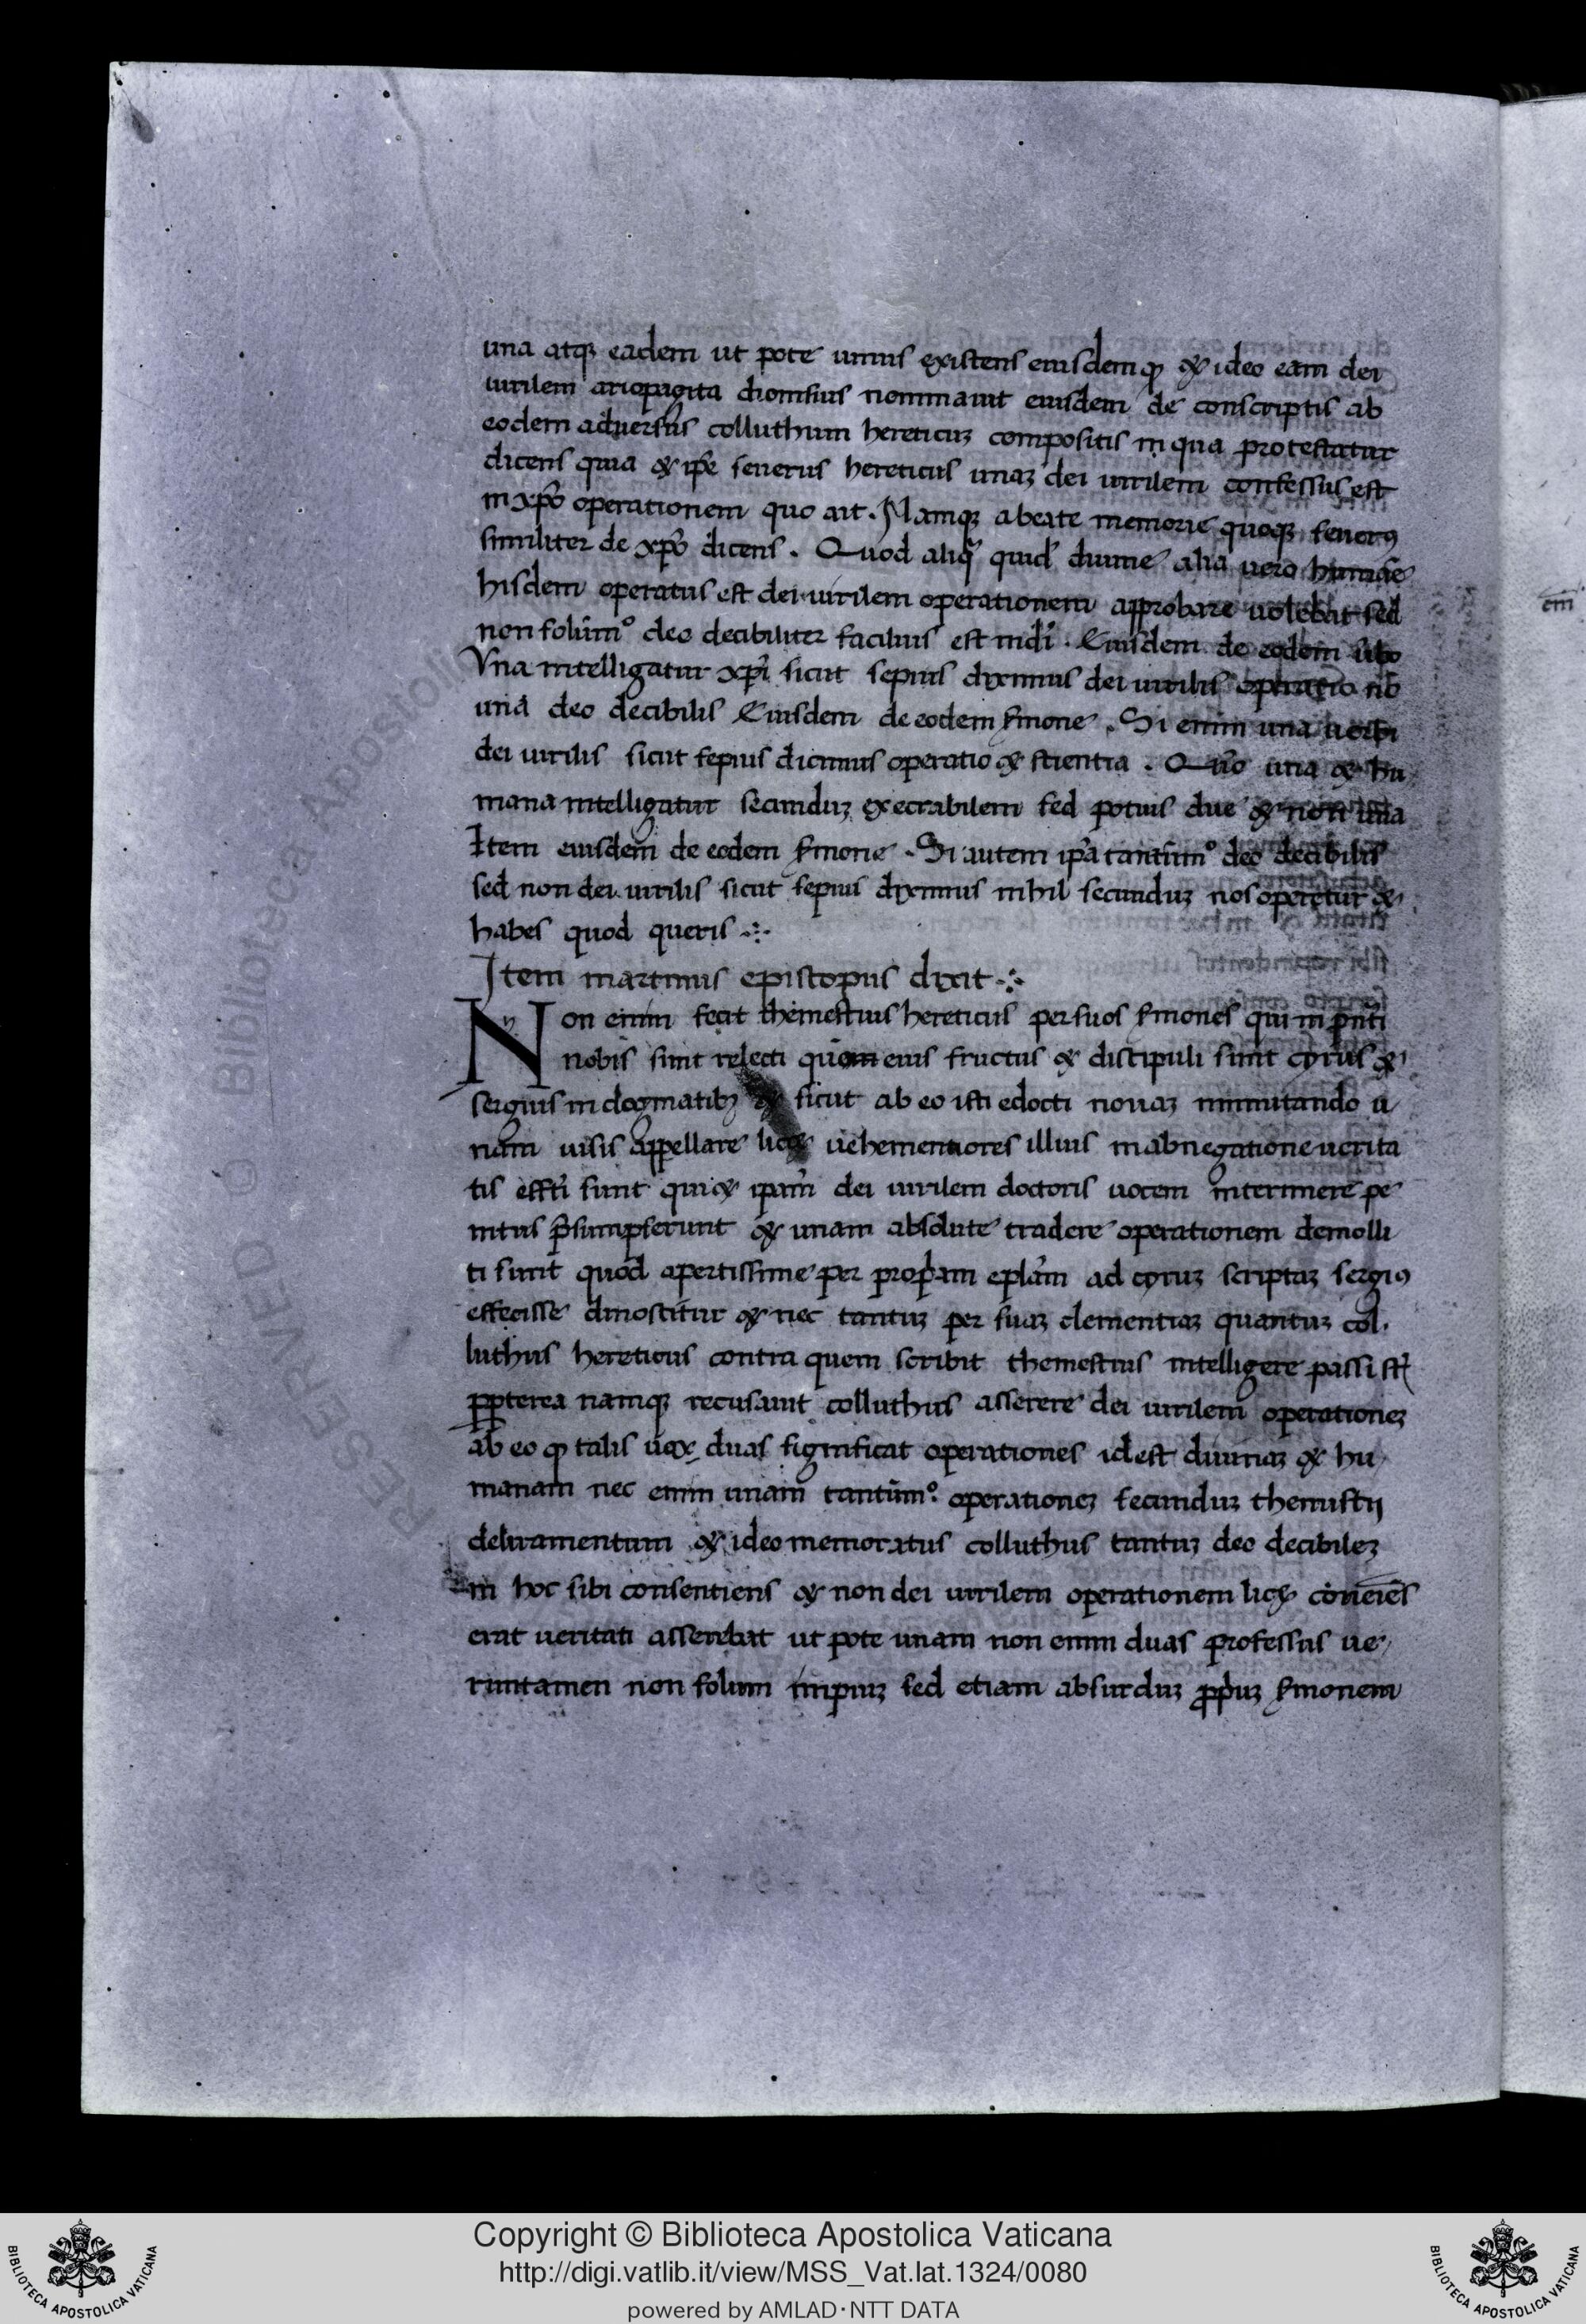 una atqꝫ eadem ut pote unius existens eiusdemqꝫ & ideo eam dei
uirilem ariopagita dionisius nominauit eiusdem de conscriptis ab
eodem aduersus colluthum hereticuꝫ compositis in qua protestatur
dicens quia & ipse seuerus hereticus unaꝫ dei uirilem confessus est
in xpo operationem quo ait. Namqꝫ a beate memorie quoqꝫ seuerꝰ
similiter de xpo dicens. Quod aliqͥ quid diuine alia uero humane
hisdem operatus est dei uirilem operationem approbare uolebat sed
non solum̊ deo decibiliter facilius est Eiusdem de eodem
Vna intelligatur xpi sicut sepius diximus dei uirilis operatio
una deo decibilis Eiusdem de eodem s̃mone. Si enim una uerbi
dei uirilis sicut sepius dicimus operatio & scientia. Quō una & hu
mana intelligatur secunduꝫ execrabilem sed potius due & non una
Item eiusdem de eodem s̃mone. Si autem ip̄a tantum̊ deo decibilis
sed non dei uirilis sicut sepius diximus nihil secunduꝫ nos operetur &
habes quod queris
Item martinus episcopus dixit
Non enim fecit themestius hereticus per suos s̃mones qui in p̄nti
nobis sunt relecti eius fructus & discipuli sunt cyrus &
sergius in dogmatibꝫ & sicut ab eo isti edocti nouaꝫ inmutando u
nam uisis appellare uehementiores illius in abnegatione uerita
tis eff̄ti sunt quia & ipam̄ dei uirilem doctoris uocem interimere pe
nitus p̄sumpserunt & unam absolute tradere operationem demolli
ti sunt quod apertissime per propriam ep̄lam ad cyruꝫ scriptaꝫ sergiꝰ
effecisse dinoscitur & nec tantuꝫ per suaꝫ clementiaꝫ quantuꝫ col
luthus hereticus contra quem scribit themestius intelligere passi st̄
ꝓpterea namqꝫ recusauit colluthus asserere dei uirilem operationeꝫ
ab eo qꝫ talis uox duas significat operationes id est diuinaꝫ & hu
manam nec enim unam tantum̊ operationeꝫ secunduꝫ themistij
deliramentum & ideo memoratus colluthus tantuꝫ deo decibileꝫ
in hoc sibi consentiens & non dei uirilem operationem lic& conueiēs
erat ueritati asserebat ut pote unam non enim duas professus ue
runtamen non solum impiuꝫ sed etiam absurduꝫ ꝓpriuꝫ s̃monem
em
Copyright © Biblioteca Apostolica Vaticana
http://digi.vatlib.it/view/MSS_Vat.lat.1324/0080
powered by AMLAD·NTT DATA